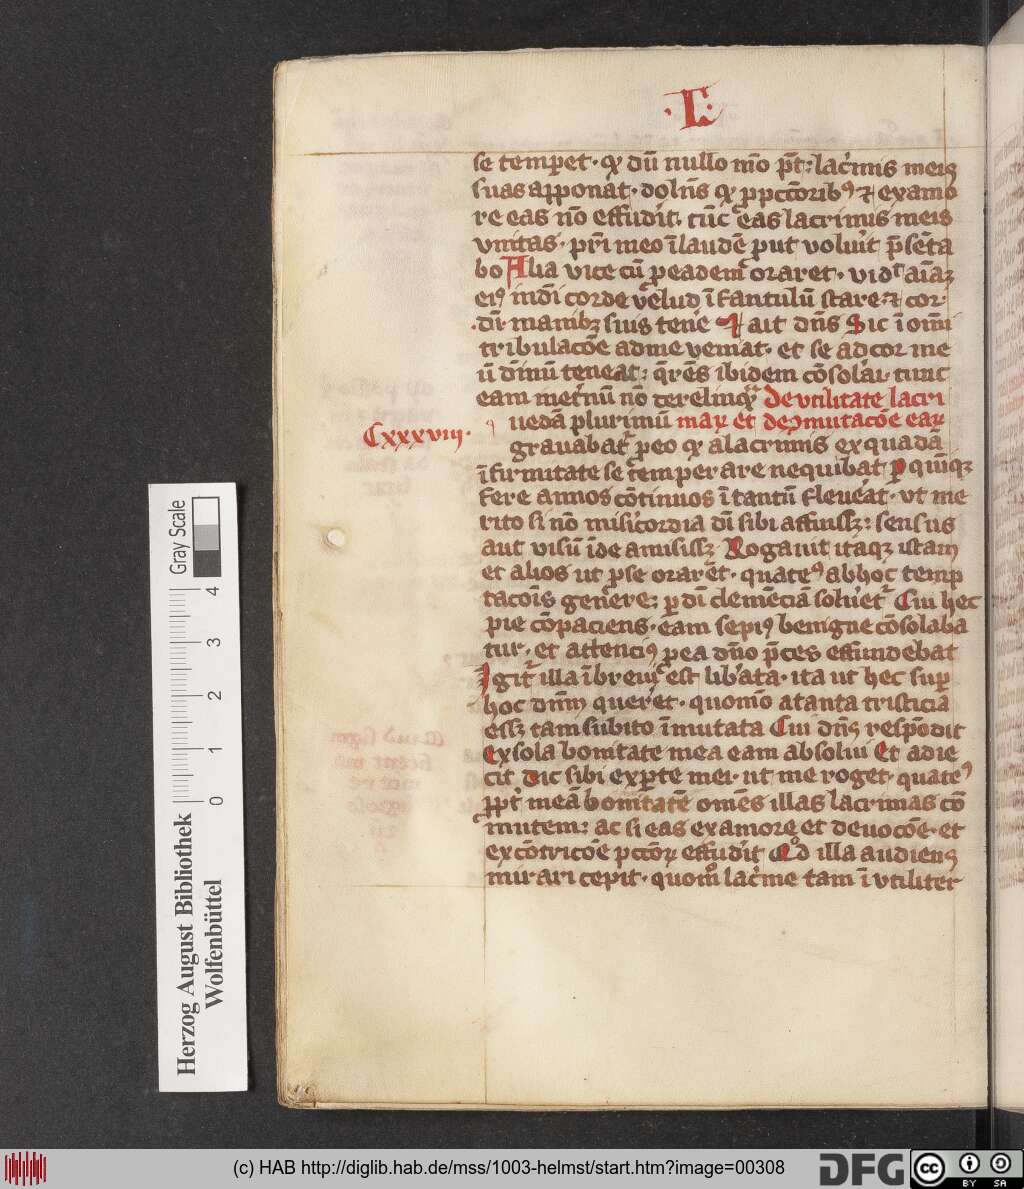 ·L·
se temp̄et· qꝫ dū nullo mō p̄t: lac̓mis meis
suas apponat· dolēs qꝫ p̱ pctōribꝰ ⁊ examo
re eas nō effudit. tūc eas lacrimis meis
vnitas· pr̄i meo ī laudē put voluit p̄sēta
bo Alia vice cū p̱ eadem oraret· vid̓ aīaꝫ
eiꝰ īndi corde velud īfantulū stare ⁊ cor·
·dī manibꝫ suis tene ait dn̄s Sic ī om̄i
tribulacōe ad me veniat· et se ad cor me
ū dīnū teneat: qr̄ēs ibidem cōsolar̄ tunc
eam met̓nū nō derelinqꝫ De vtilitate lacri
uedā plurimū maꝝ et de ꝯmutacōe eaꝝ
Cxxxviij·
grauabat̓ p̱ eo qꝫ a lacrimis ex quadā
īfirmitate se temperare nequibat p̱ quīqꝫ
fere annos cōtinuos ī tantū fleuerat· vt me
rito si nō mis̄icordia dī sibi affuissꝫ: sensus
aut visū īde amisissꝫ Rogauit itaqꝫ istam
et alios ut p̱ se orar̄et· quatenꝰ ab hoc temp
tacōis gen̄ere: p̱ dī clemēciā soluet̓ Cui hec
pie cōpaciens· eam sepiꝰ benigne cōsolaba
tur· et attenciꝰ p̱ ea dn̄o p̄ces effundebat
Igit̓ illa ī breui est lib̓ata· ita ut hec sup̱
hoc dn̄m quer̄et· quomō a tanta tristicia
essꝫ tam subito īmutata Cui dn̄s respōdit
Ex sola bonitate mea eam absolui Et adie
cit Dic sibi ex p̱te mei· ut me roget· quatenꝰ
p̱pt̓ meā bonitatē omēs illas lacrimas cō
mutem: ac si eas ex amore et deuocōe· et
ex cōtricōe p̱ctōꝝ effudit Qd̓ illa audiens
mirari cepit· quomō lac̓me tam ī vtiliter
Gray Scale
4
3
2
1
0
Herzog August Bibliothek
Wolfenbüttel
(c) HAB http://diglib.hab.de/mss/1003-helmst/start.htm?image=00308
DFG
cc
BY SA